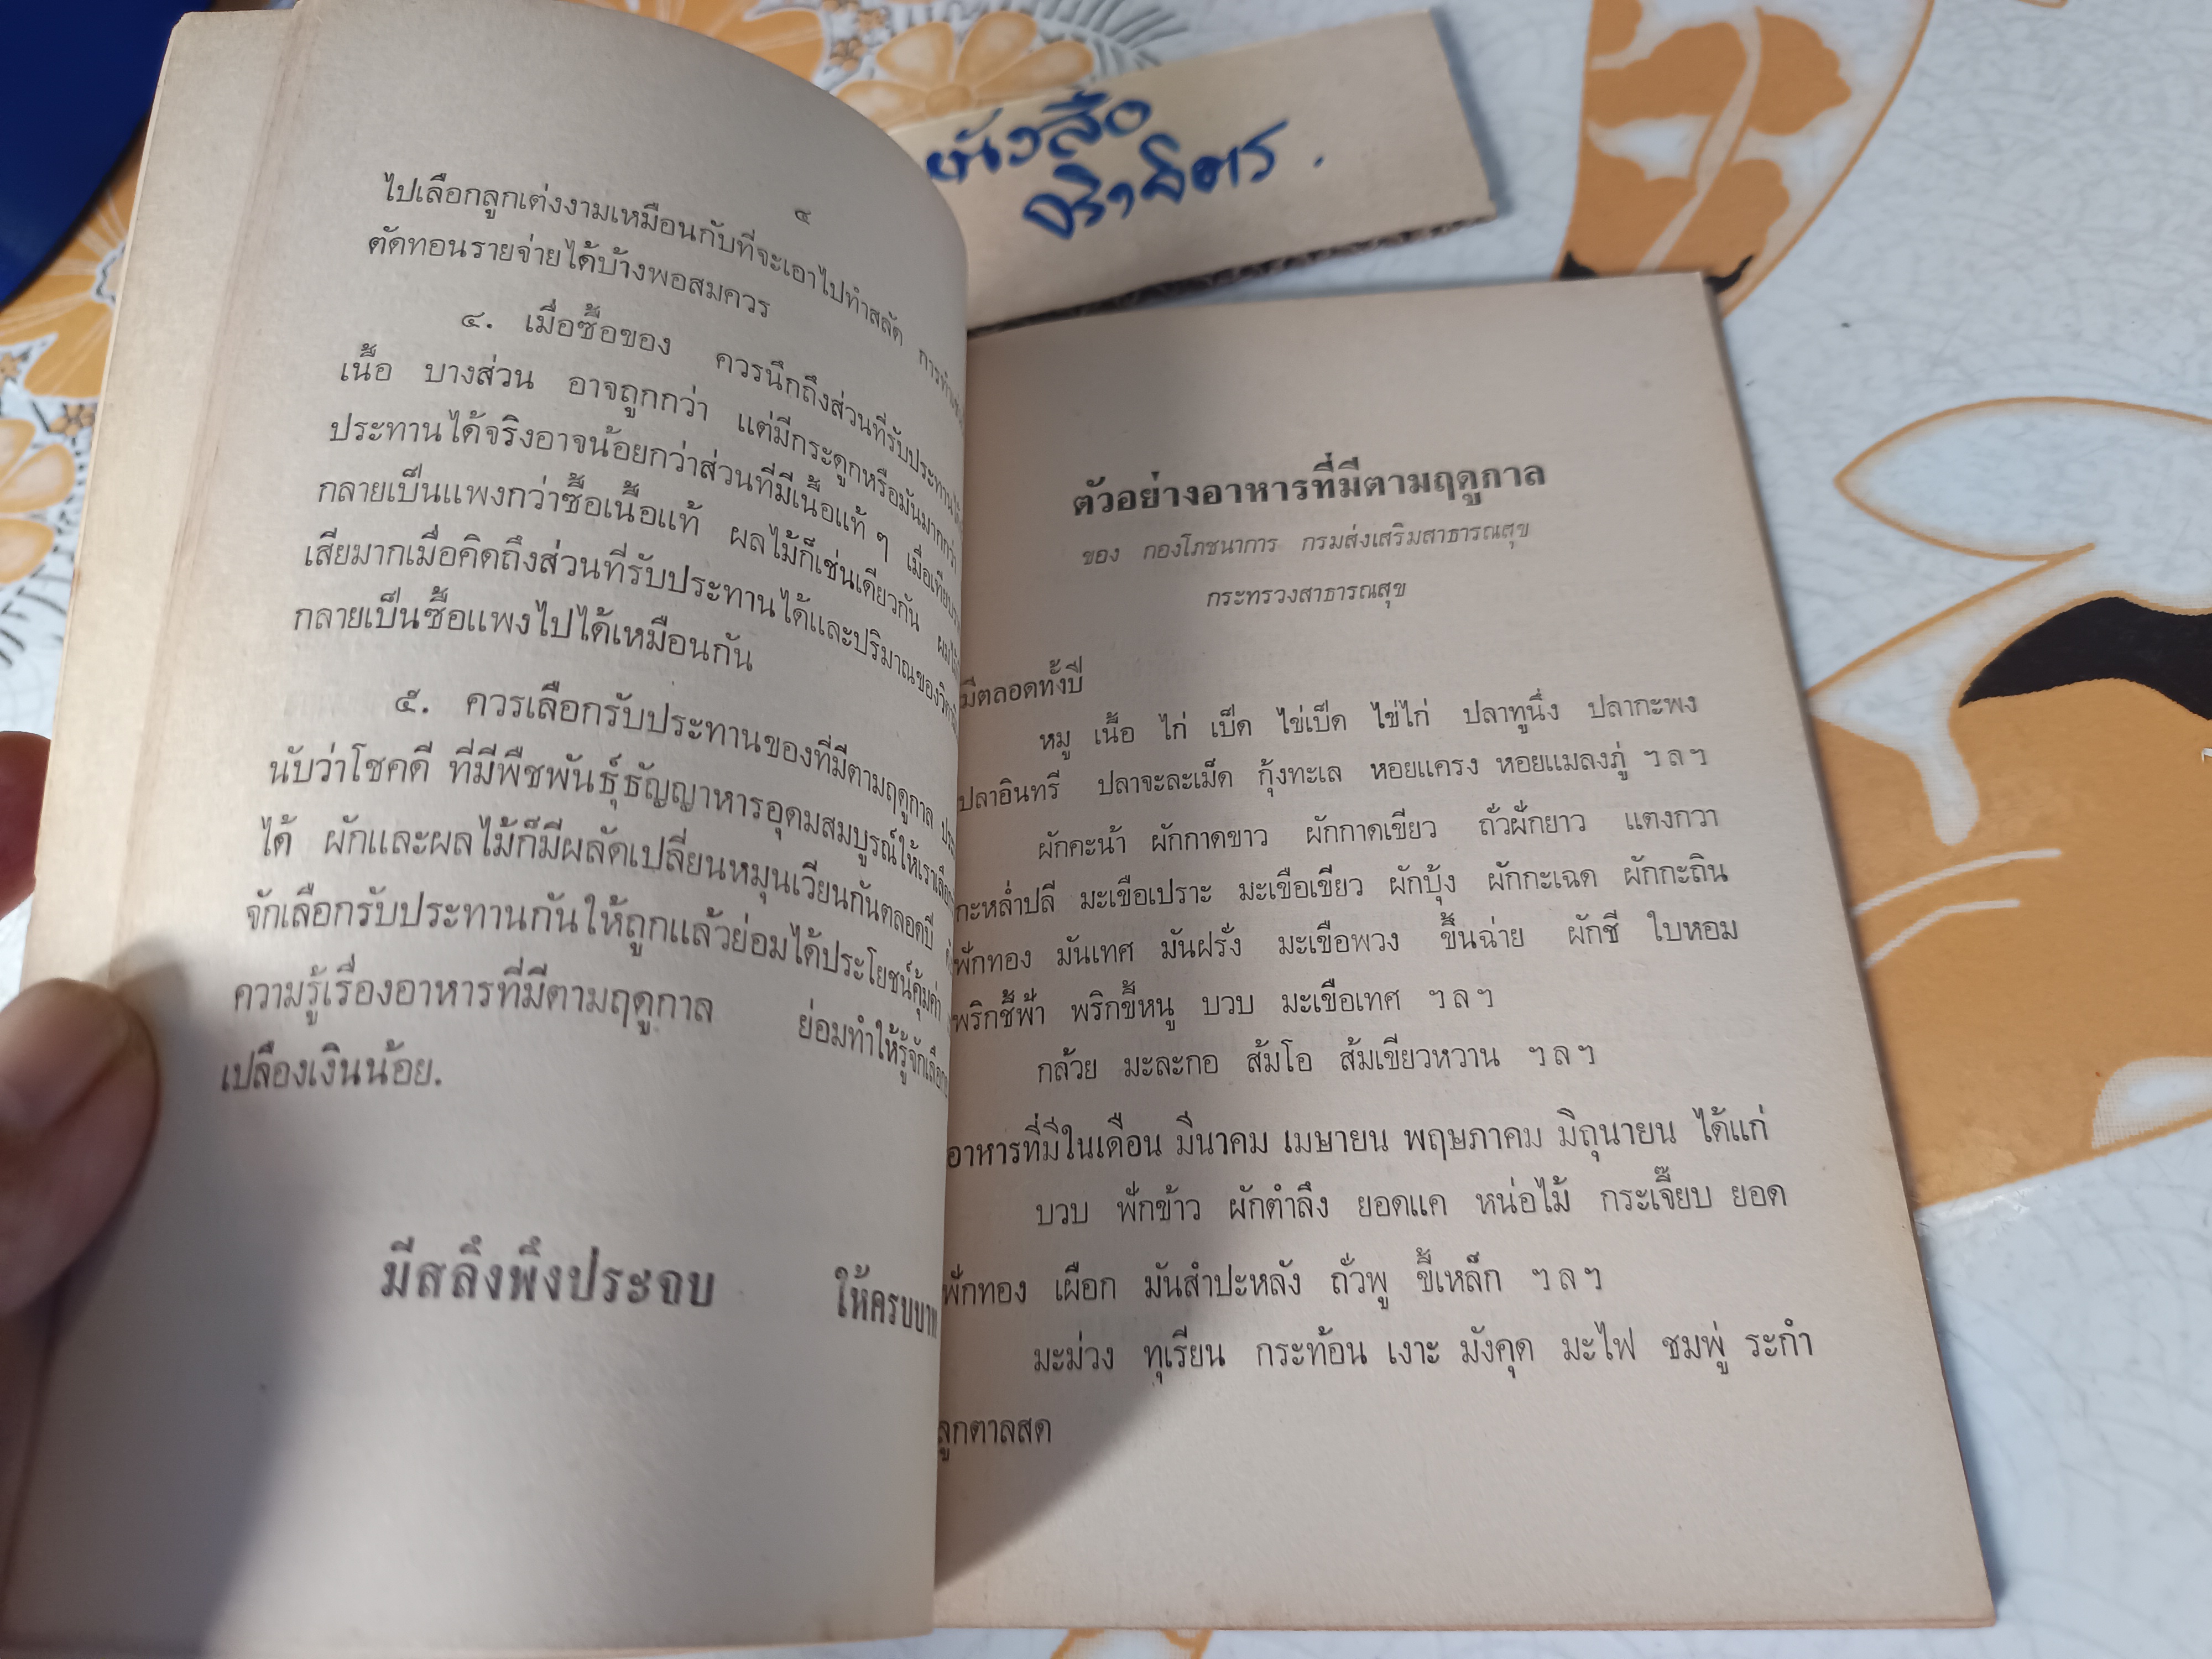 ๔
ไปเลือกลูกเต่งงามเหมือนกับที่จะเอาไปทำสลัด
ตัดทอนรายจ่ายได้บ้างพอสมควร
๔. เมื่อซื้อของ ควรนึกถึงส่วนที่รับประทานได้
เนื้อ บางส่วน อาจถูกกว่า แต่มีกระดูกหรือมันมากกว่า
ประทานได้จริงอาจน้อยกว่าส่วนที่มีเนื้อแท้ ๆ
กลายเป็นแพงกว่าซื้อเนื้อแท้ ผลไม้ก็เช่นเดียวกัน
เสียมากเมื่อคิดถึงส่วนที่รับประทานได้และปริมาณของ
กลายเป็นซื้อแพงไปได้เหมือนกัน
๕. ควรเลือกรับประทานของที่มีตามฤดูกาล
นับว่าโชคดี ที่มีพืชพันธุ์ธัญญาหารอุดมสมบูรณ์ให้เราเลือก
ได้ ผักและผลไม้ก็มีผลัดเปลี่ยนหมุนเวียนกันตลอดปี
จักเลือกรับประทานกันให้ถูกแล้วย่อมได้ประโยชน์คุ้มค่า
ความรู้เรื่องอาหารที่มีตามฤดูกาล ย่อมทำให้รู้จักเลือก
เปลืองเงินน้อย.
มีสลึงพึงประจบ ให้ครบบาท
หนังสือ
ตัวอย่างอาหารที่มีตามฤดูกาล
ของ กองโภชนาการ กรมส่งเสริมสาธารณสุข
กระทรวงสาธารณสุข
มีตลอดทั้งปี
หมู เนื้อ ไก่ เป็ด ไข่เป็ด ไข่ไก่ ปลาทูนึ่ง ปลากะพง
ปลาอินทรี ปลาจะละเม็ด กุ้งทะเล หอยแครง หอยแมลงภู่ ฯลฯ
ผักคะน้า ผักกาดขาว ผักกาดเขียว ถั่วฝักยาว แตงกวา
กะหล่ำปลี มะเขือเปราะ มะเขือเขียว ผักบุ้ง ผักกะเฉด ผักกะถิน
ฟักทอง มันเทศ มันฝรั่ง มะเขือพวง ขึ้นฉ่าย ผักชี ใบหอม
พริกชี้ฟ้า พริกขี้หนู บวบ มะเขือเทศ ฯลฯ
กล้วย มะละกอ ส้มโอ ส้มเขียวหวาน ฯลฯ
อาหารที่มีในเดือน มีนาคม เมษายน พฤษภาคม มิถุนายน ได้แก่
บวบ ฟักข้าว ผักตำลึง ยอดแค หน่อไม้ กระเจี๊ยบ ยอด
ฟักทอง เผือก มันสำปะหลัง ถั่วพู ขี้เหล็ก ฯลฯ
มะม่วง ทุเรียน กระท้อน เงาะ มังคุด มะไฟ ชมพู่ ระกำ
ลูกตาลสด